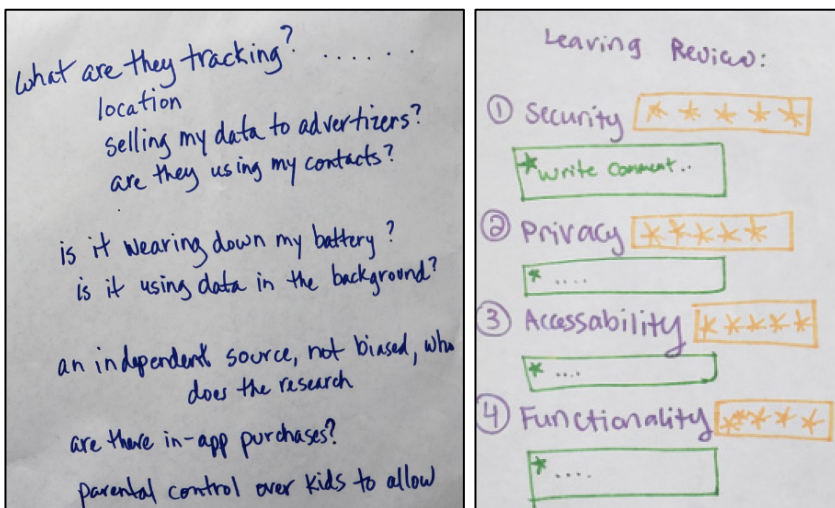 What are they tracking? ......
location
selling my data to advertizers?
are they using my contacts?
is it wearing down my battery?
is it using data in the background?
an independent source, not biased, who
does the research
are there in-app purchases?
parental control over kids to allow
Leaving Review:
① Security * * * * *
* Write Comment..
② Privacy * * * * *
* ....
③ Accessability * * * * *
* ....
④ Functionality * * * * *
* ....